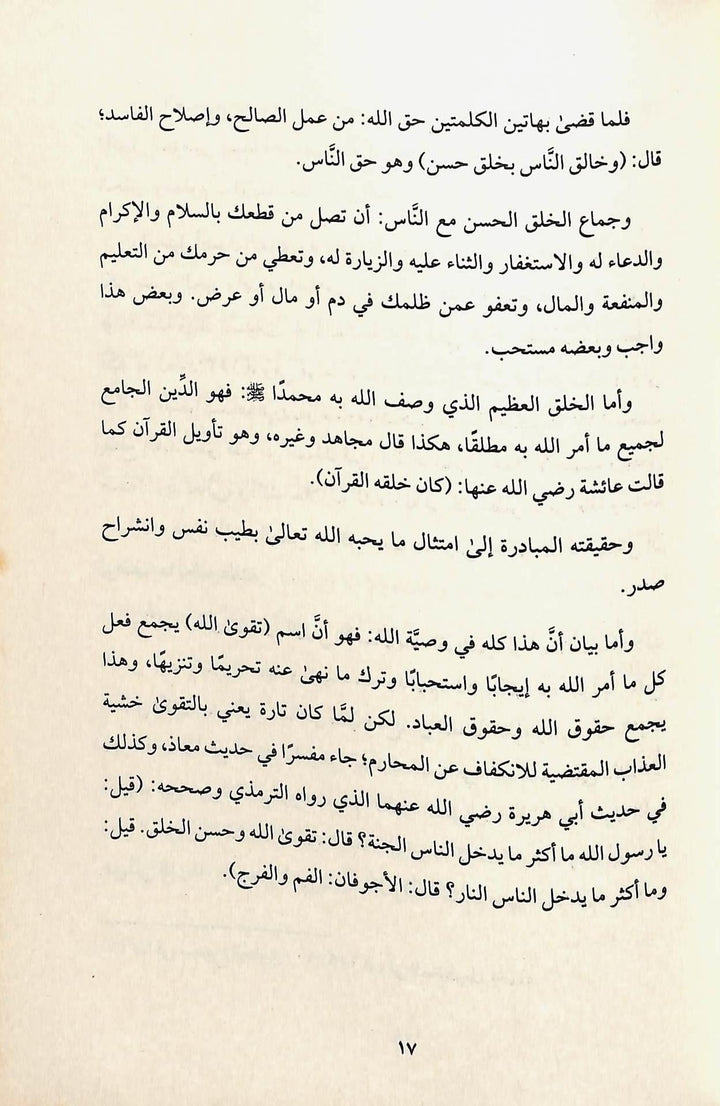 فلما قضىٰ بهاتين الكلمتين حق الله: من عمل الصالح، وإصلاح الفاسد؛
قال: (وخالق النَّاس بخلق حسن) وهو حق النَّاس.
وجماع الخلق الحسن مع النَّاس: أن تصل من قطعك بالسلام والإكرام
والدعاء له والاستغفار والثناء عليه والزيارة له، وتعطي من حرمك من التعليم
والمنفعة والمال، وتعفو عمن ظلمك في دم أو مال أو عرض. وبعض هذا
واجب وبعضه مستحب.
وأما الخلق العظيم الذي وصف الله به محمدًا ﷺ: فهو الدِّين الجامع
لجميع ما أمر الله به مطلقًا، هكذا قال مجاهد وغيره، وهو تأويل القرآن كما
قالت عائشة رضي الله عنها: (كان خلقه القرآن).
وحقيقته المبادرة إلىٰ امتثال ما يحبه الله تعالىٰ بطيب نفس وانشراح
صدر.
وأما بيان أنَّ هذا كله في وصيَّة الله: فهو أنَّ اسم (تقوىٰ الله) يجمع فعل
كل ما أمر الله به إيجابًا واستحبابًا وترك ما نهىٰ عنه تحريمًا وتنزيهًا، وهذا
يجمع حقوق الله وحقوق العباد. لكن لمَّا كان تارة يعني بالتقوىٰ خشية
العذاب المقتضية للانكفاف عن المحارم؛ جاء مفسرًا في حديث معاذ، وكذلك
في حديث أبي هريرة رضي الله عنهما الذي رواه الترمذي وصححه: (قيل:
يا رسول الله ما أكثر ما يدخل الناس الجنة؟ قال: تقوىٰ الله وحسن الخلق. قيل:
وما أكثر ما يدخل الناس النار؟ قال: الأجوفان: الفم والفرج).
١٧